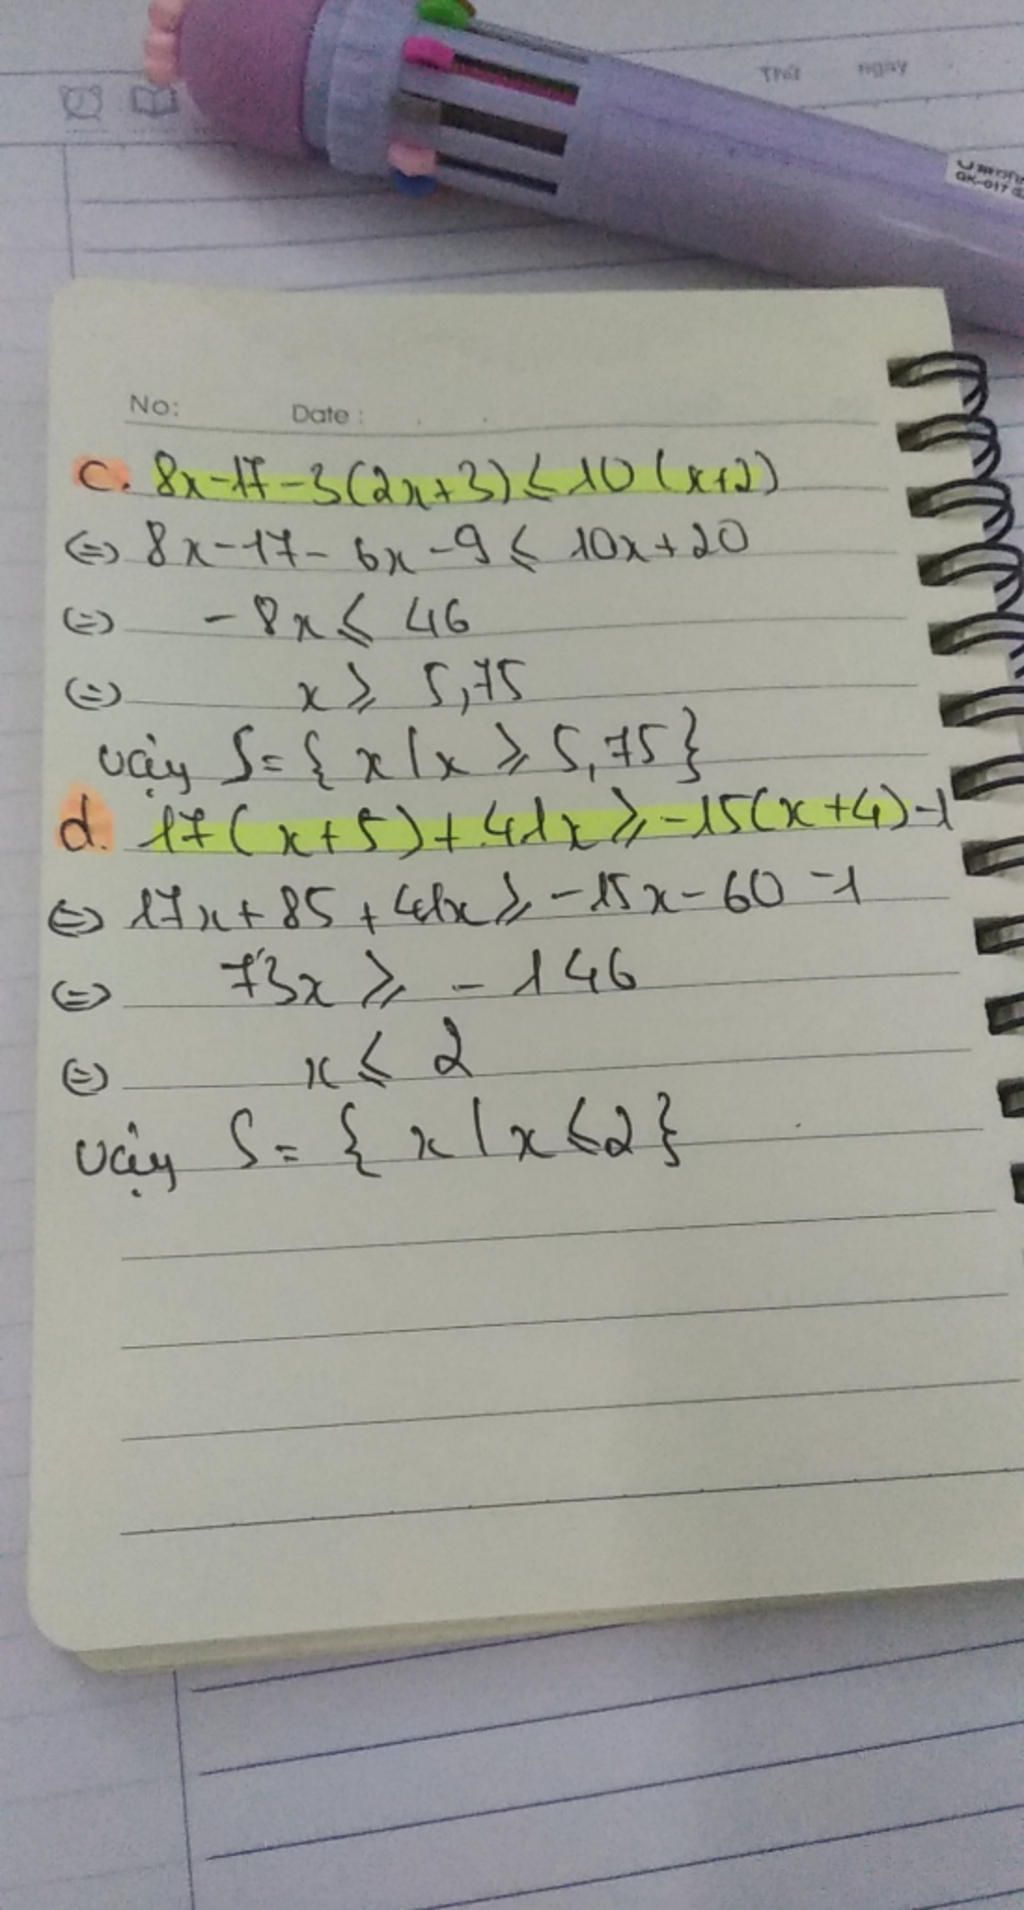 Thứ ngày
GK-017
No: Date:
c. 8x-17-3(2x+3)⩽10(x+2)
⇔ 8x-17-6x-9⩽10x+20
⇔ -8x⩽46
⇔ x⩾5,75
vậy S={x|x⩾5,75}
d. 17(x+5)+41x⩾-15(x+4)-1
⇔ 17x+85+41x⩾-15x-60-1
⇔ 73x⩾-146
⇔ x⩽2
vậy S={x|x⩽2}